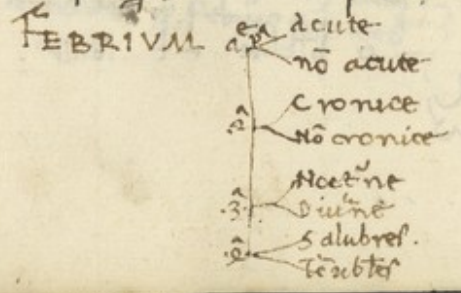 FEBRIVM
acute
nō acute
Cronice
Nō cronice
Noctᷣne
Diuᷣne
Salubres.